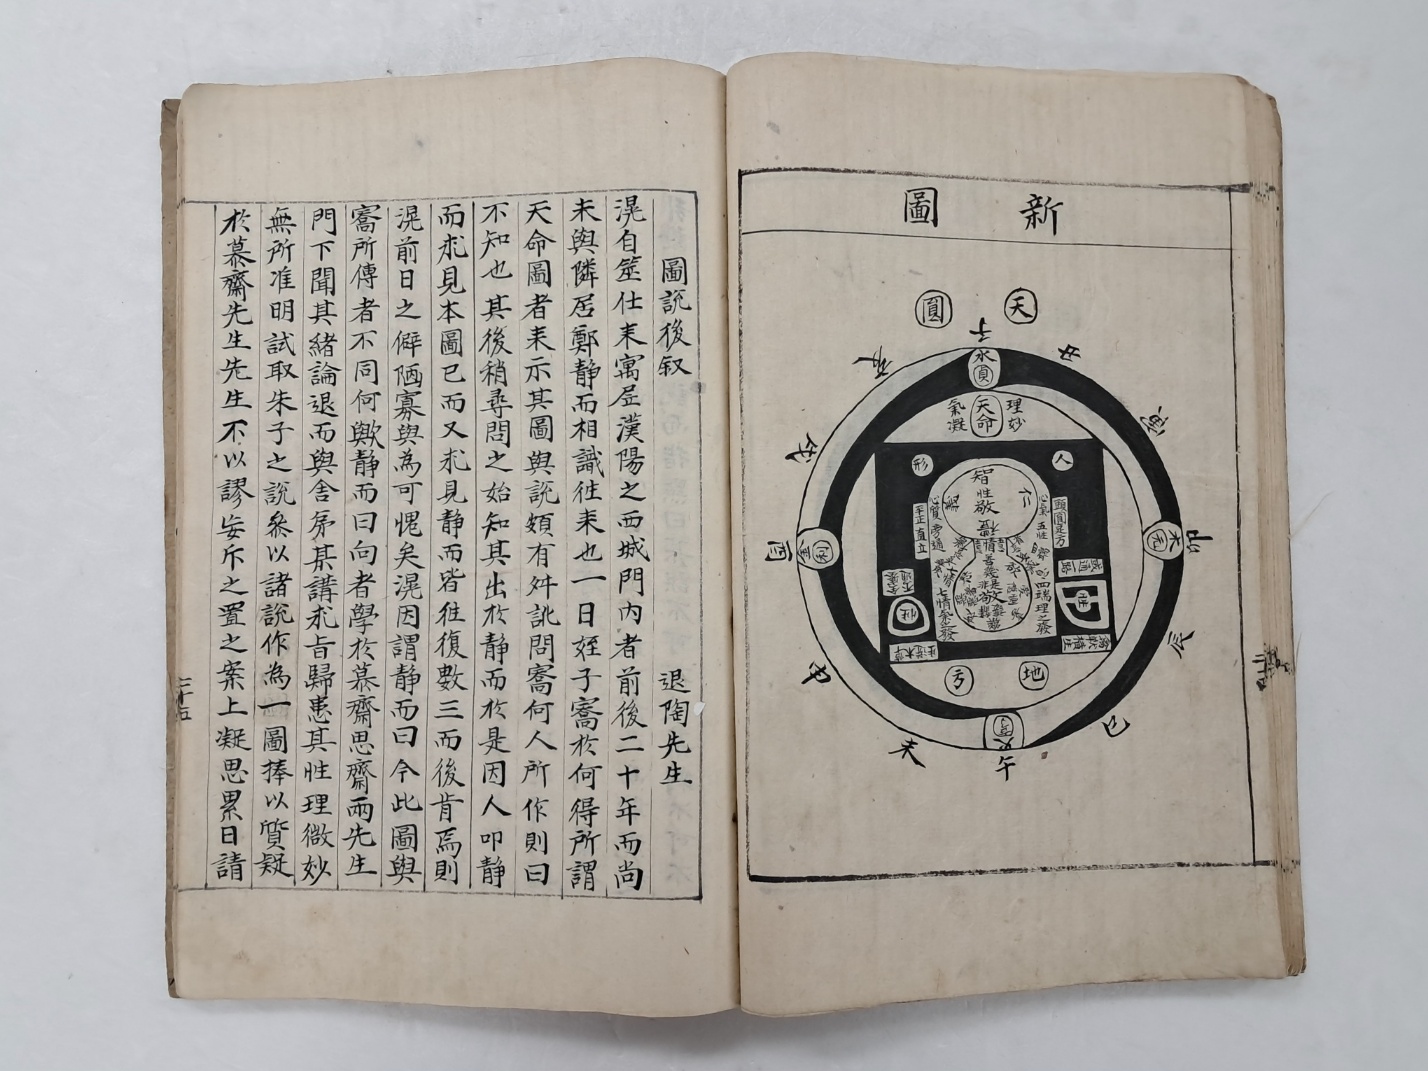 新圖
天圓
子
丑
寅
卯
辰
巳
午
未
申
酉
戌
亥
水貞
天命
理妙
氣凝
人形
智
仁
性敬
頭圓足方
平正直立
四端理之發
七情氣之發
木元
地方
圖說後叙 退陶先生
滉自筮仕来寓居漢陽之西城門內者前後二十年而尚
未與隣居鄭静而相識往来也一日姪子㝯於何得所謂
天命圖者来示其圖與說頗有舛訛問㝯何人所作則曰
不知也其後稍尋問之始知其出於静而於是因人叩静
而求見本圖已而又求見静而皆往復數三而後肯焉則
滉前日之僻陋寡與為可愧矣滉因謂静而曰今此圖與
㝯所傳者不同何歟静而曰向者學於慕齋思齋兩先生
門下聞其緖論退而與舍弟某講求旨歸患其性理微妙
無所准明試取朱子之說參以諸說作為一圖捧以質疑
於慕齋先生先生不以謬妄斥之置之案上凝思累日請